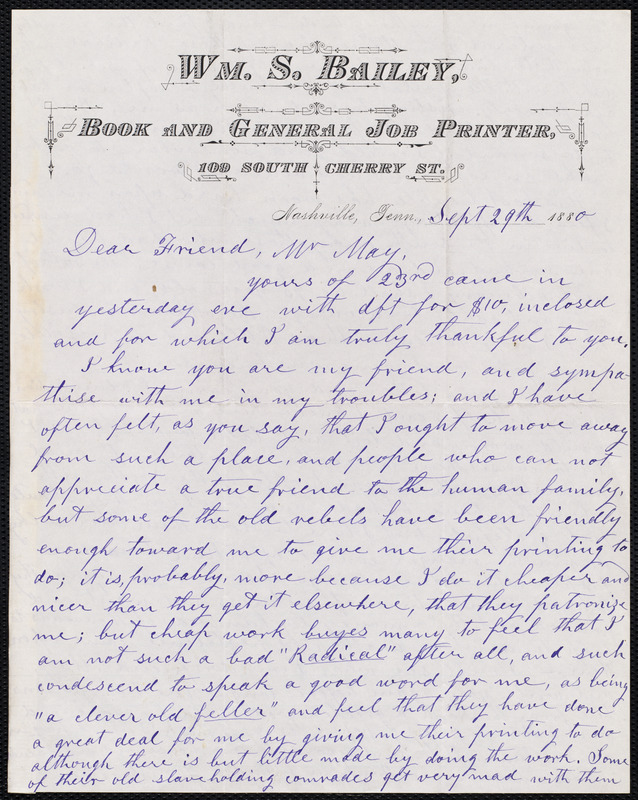 WM. S. BAILEY,
BOOK AND GENERAL JOB PRINTER,
109 SOUTH CHERRY ST.
Nashville, Tenn., Sept 29th 1880
Dear Friend, Mr May,
yours of 23rd came in
yesterday eve with dft for $10, inclosed
and for which I am truly thankful to you.
I know you are my friend, and sympa-
thise with me in my troubles; and I have
often felt, as you say, that I ought to move away
from such a place, and people who can not
appreciate a true friend to the human family,
but some of the old rebels have been friendly
enough toward me to give me their printing to
do; it is, probably, more because I do it cheaper and
nicer than they get it elsewhere, that they patronize
me; but cheap work buyes many to feel that I
am not such a bad "Radical" after all, and such
condescend to speak a good word for me, as being
"a clever old feller" and feel that they have done
a great deal for me by giving me their printing to do
although there is but little made by doing the work. Some
of their old slaveholding comrades get very mad with them